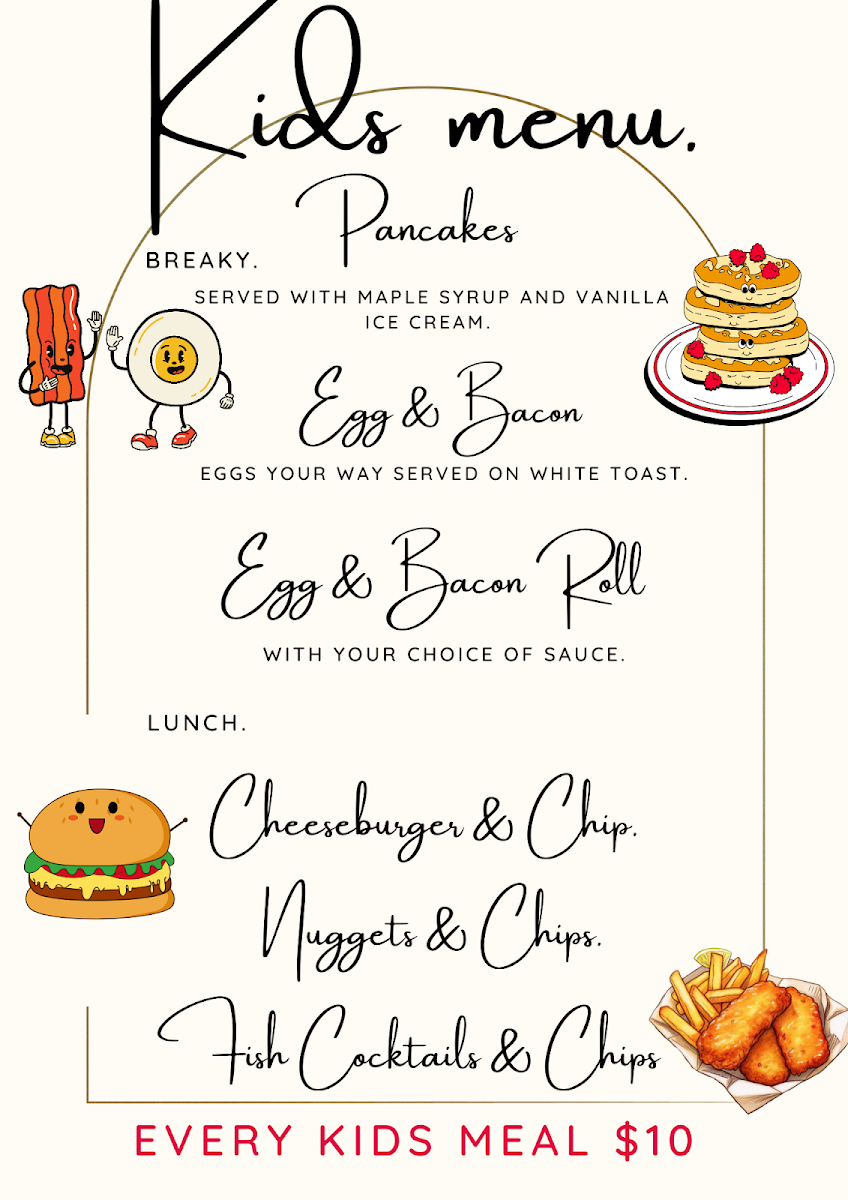 Kids menu.
Pancakes
BREAKY.
SERVED WITH MAPLE SYRUP AND VANILLA
ICE CREAM.
Egg & Bacon
EGGS YOUR WAY SERVED ON WHITE TOAST.
Egg & Bacon Roll
WITH YOUR CHOICE OF SAUCE.
LUNCH.
Cheeseburger & Chip.
Nuggets & Chips.
Fish Cocktails & Chips
EVERY KIDS MEAL $10